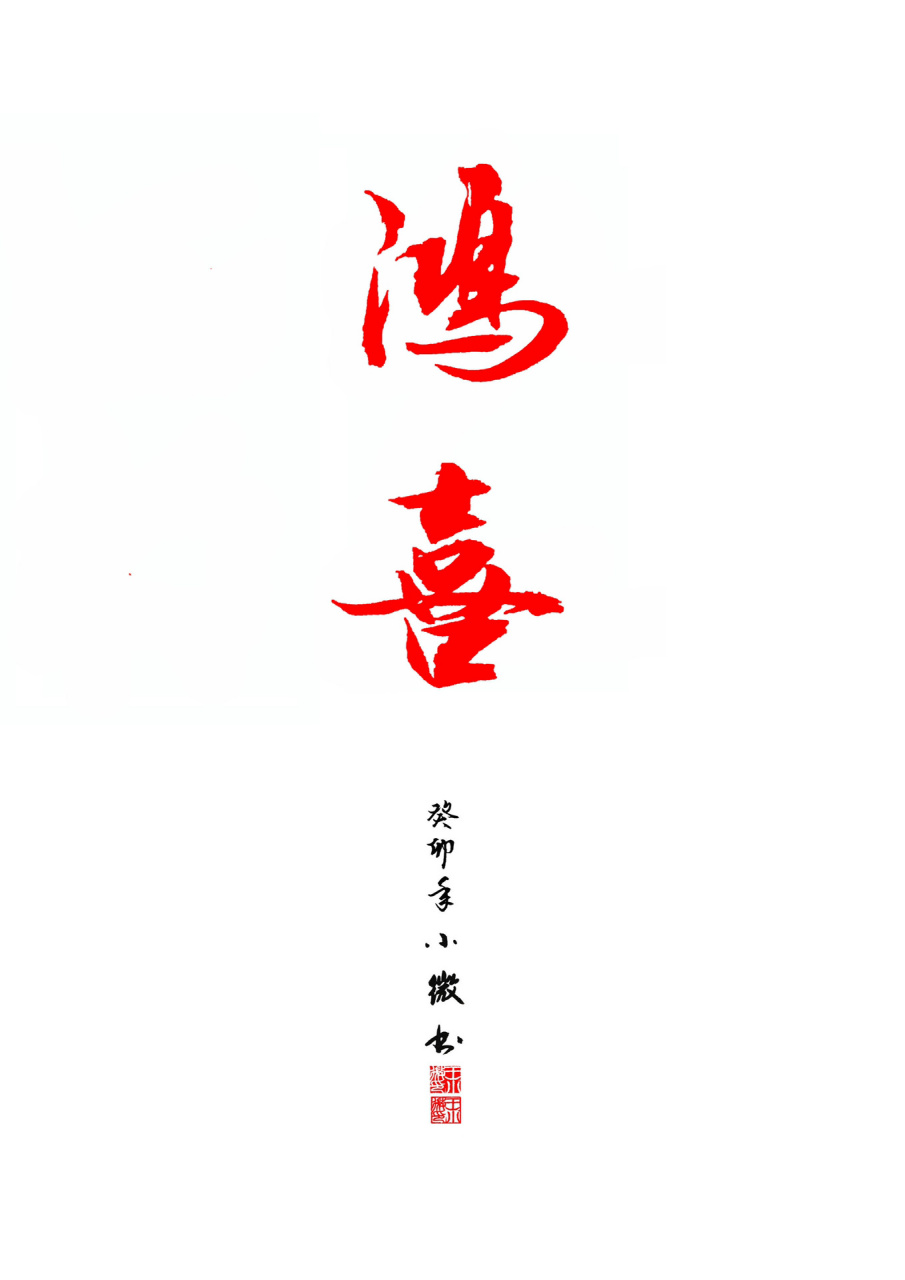 鸿喜
癸卯年小微书